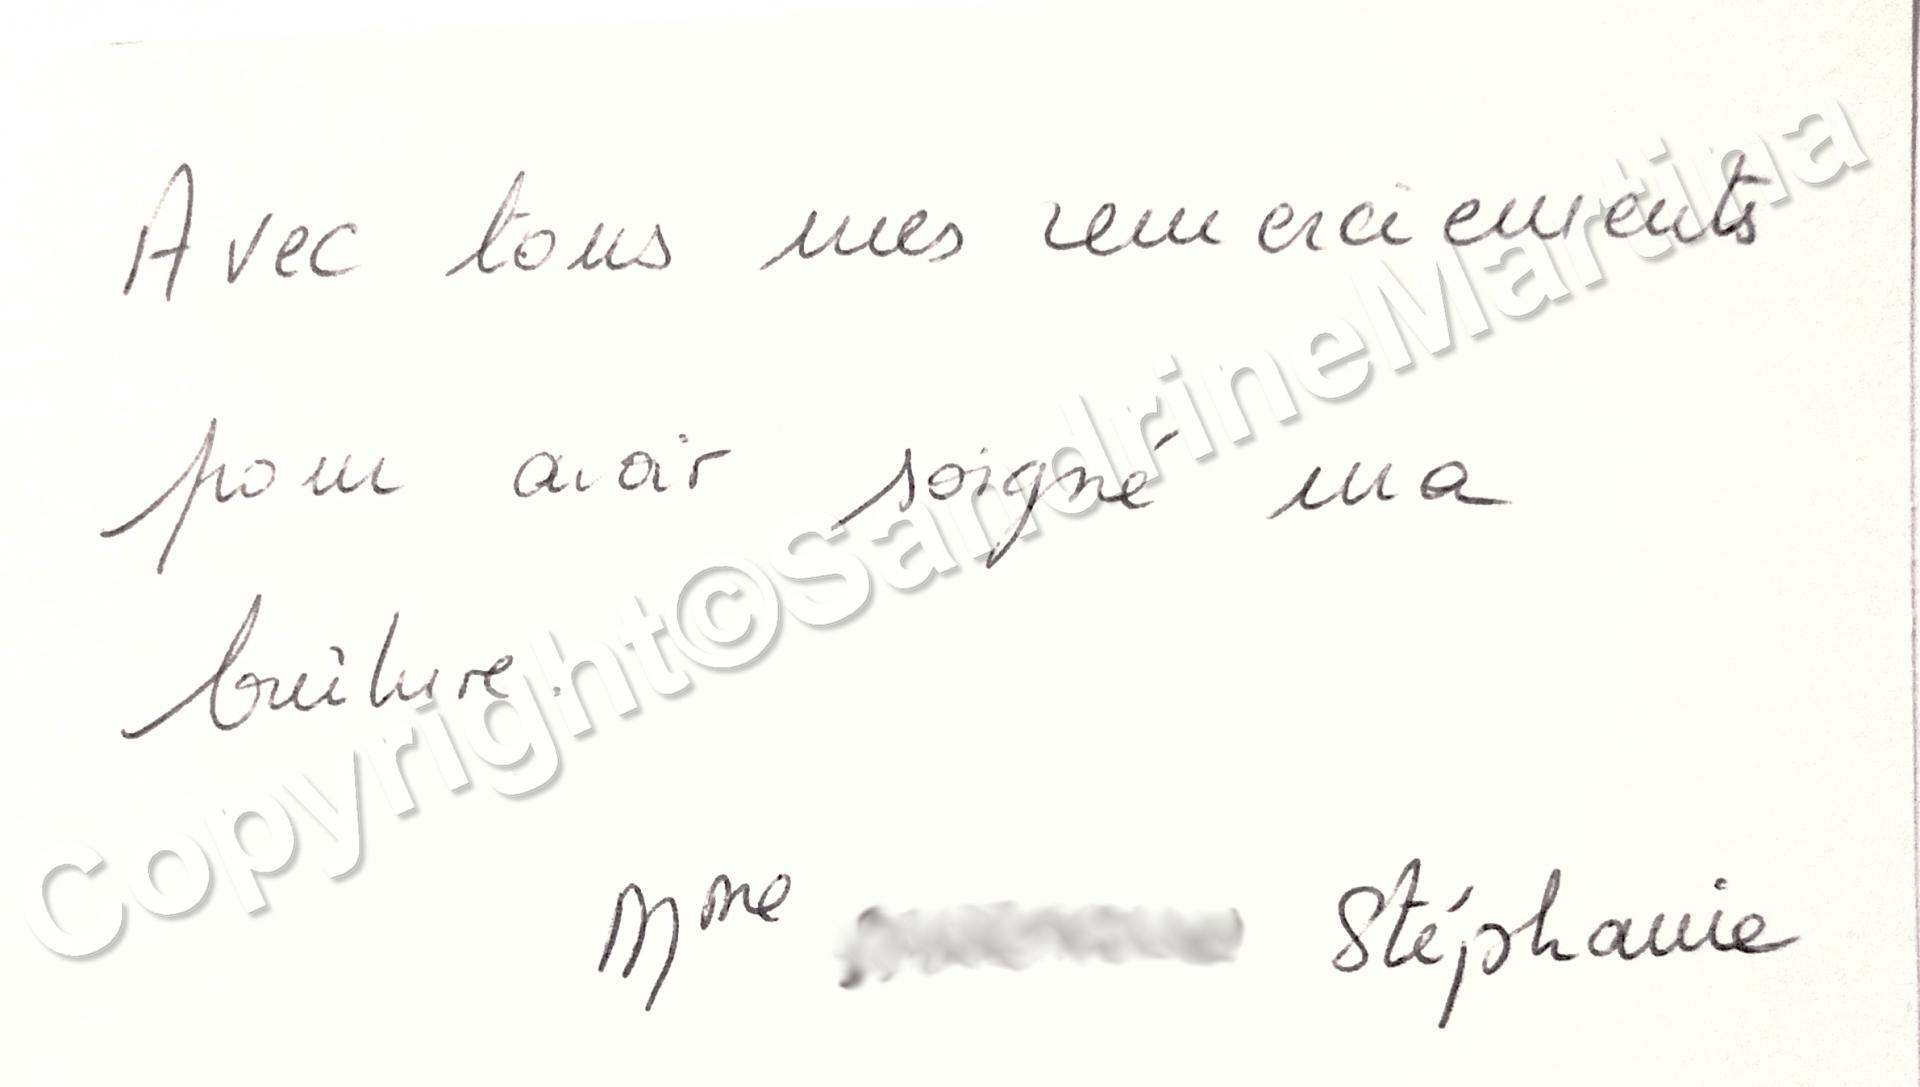 Avec tous mes remerciements
pour avoir soigné ma
brûlure.
Mme Stéphanie
Copyright©SandrineMartina